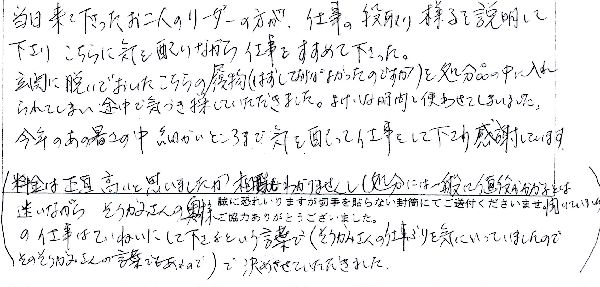 当日来て下さったお二人のリーダーの方が、仕事の段取り様子を説明して
下さり こちらに気を配りながら仕事をすすめて下さった。
玄関に脱いでおいたこちらの履物(はずしておけばよかったのですが)を処分品の中に入れ
られてしまい 途中で気づき探していただきました。よけいな時間を使わせてしまいました。
今年のあの暑さの中 細かいところまで気を配って仕事をして下さり感謝しています
(料金は正直高いと思いましたが 相場もわかりませんし(処分には一般に値段が
迷いながら そうがみさんの奥様
誠に恐れいりますが切手を貼らない封筒にてご送付くださいませ。
ご協力ありがとうございました。
の仕事はていねいにして下さるという言葉で(そうがみさんの仕事ぶりを気にいっていましたので
そのそうがみさんの言葉でもあるので)で決めさせていただきました。